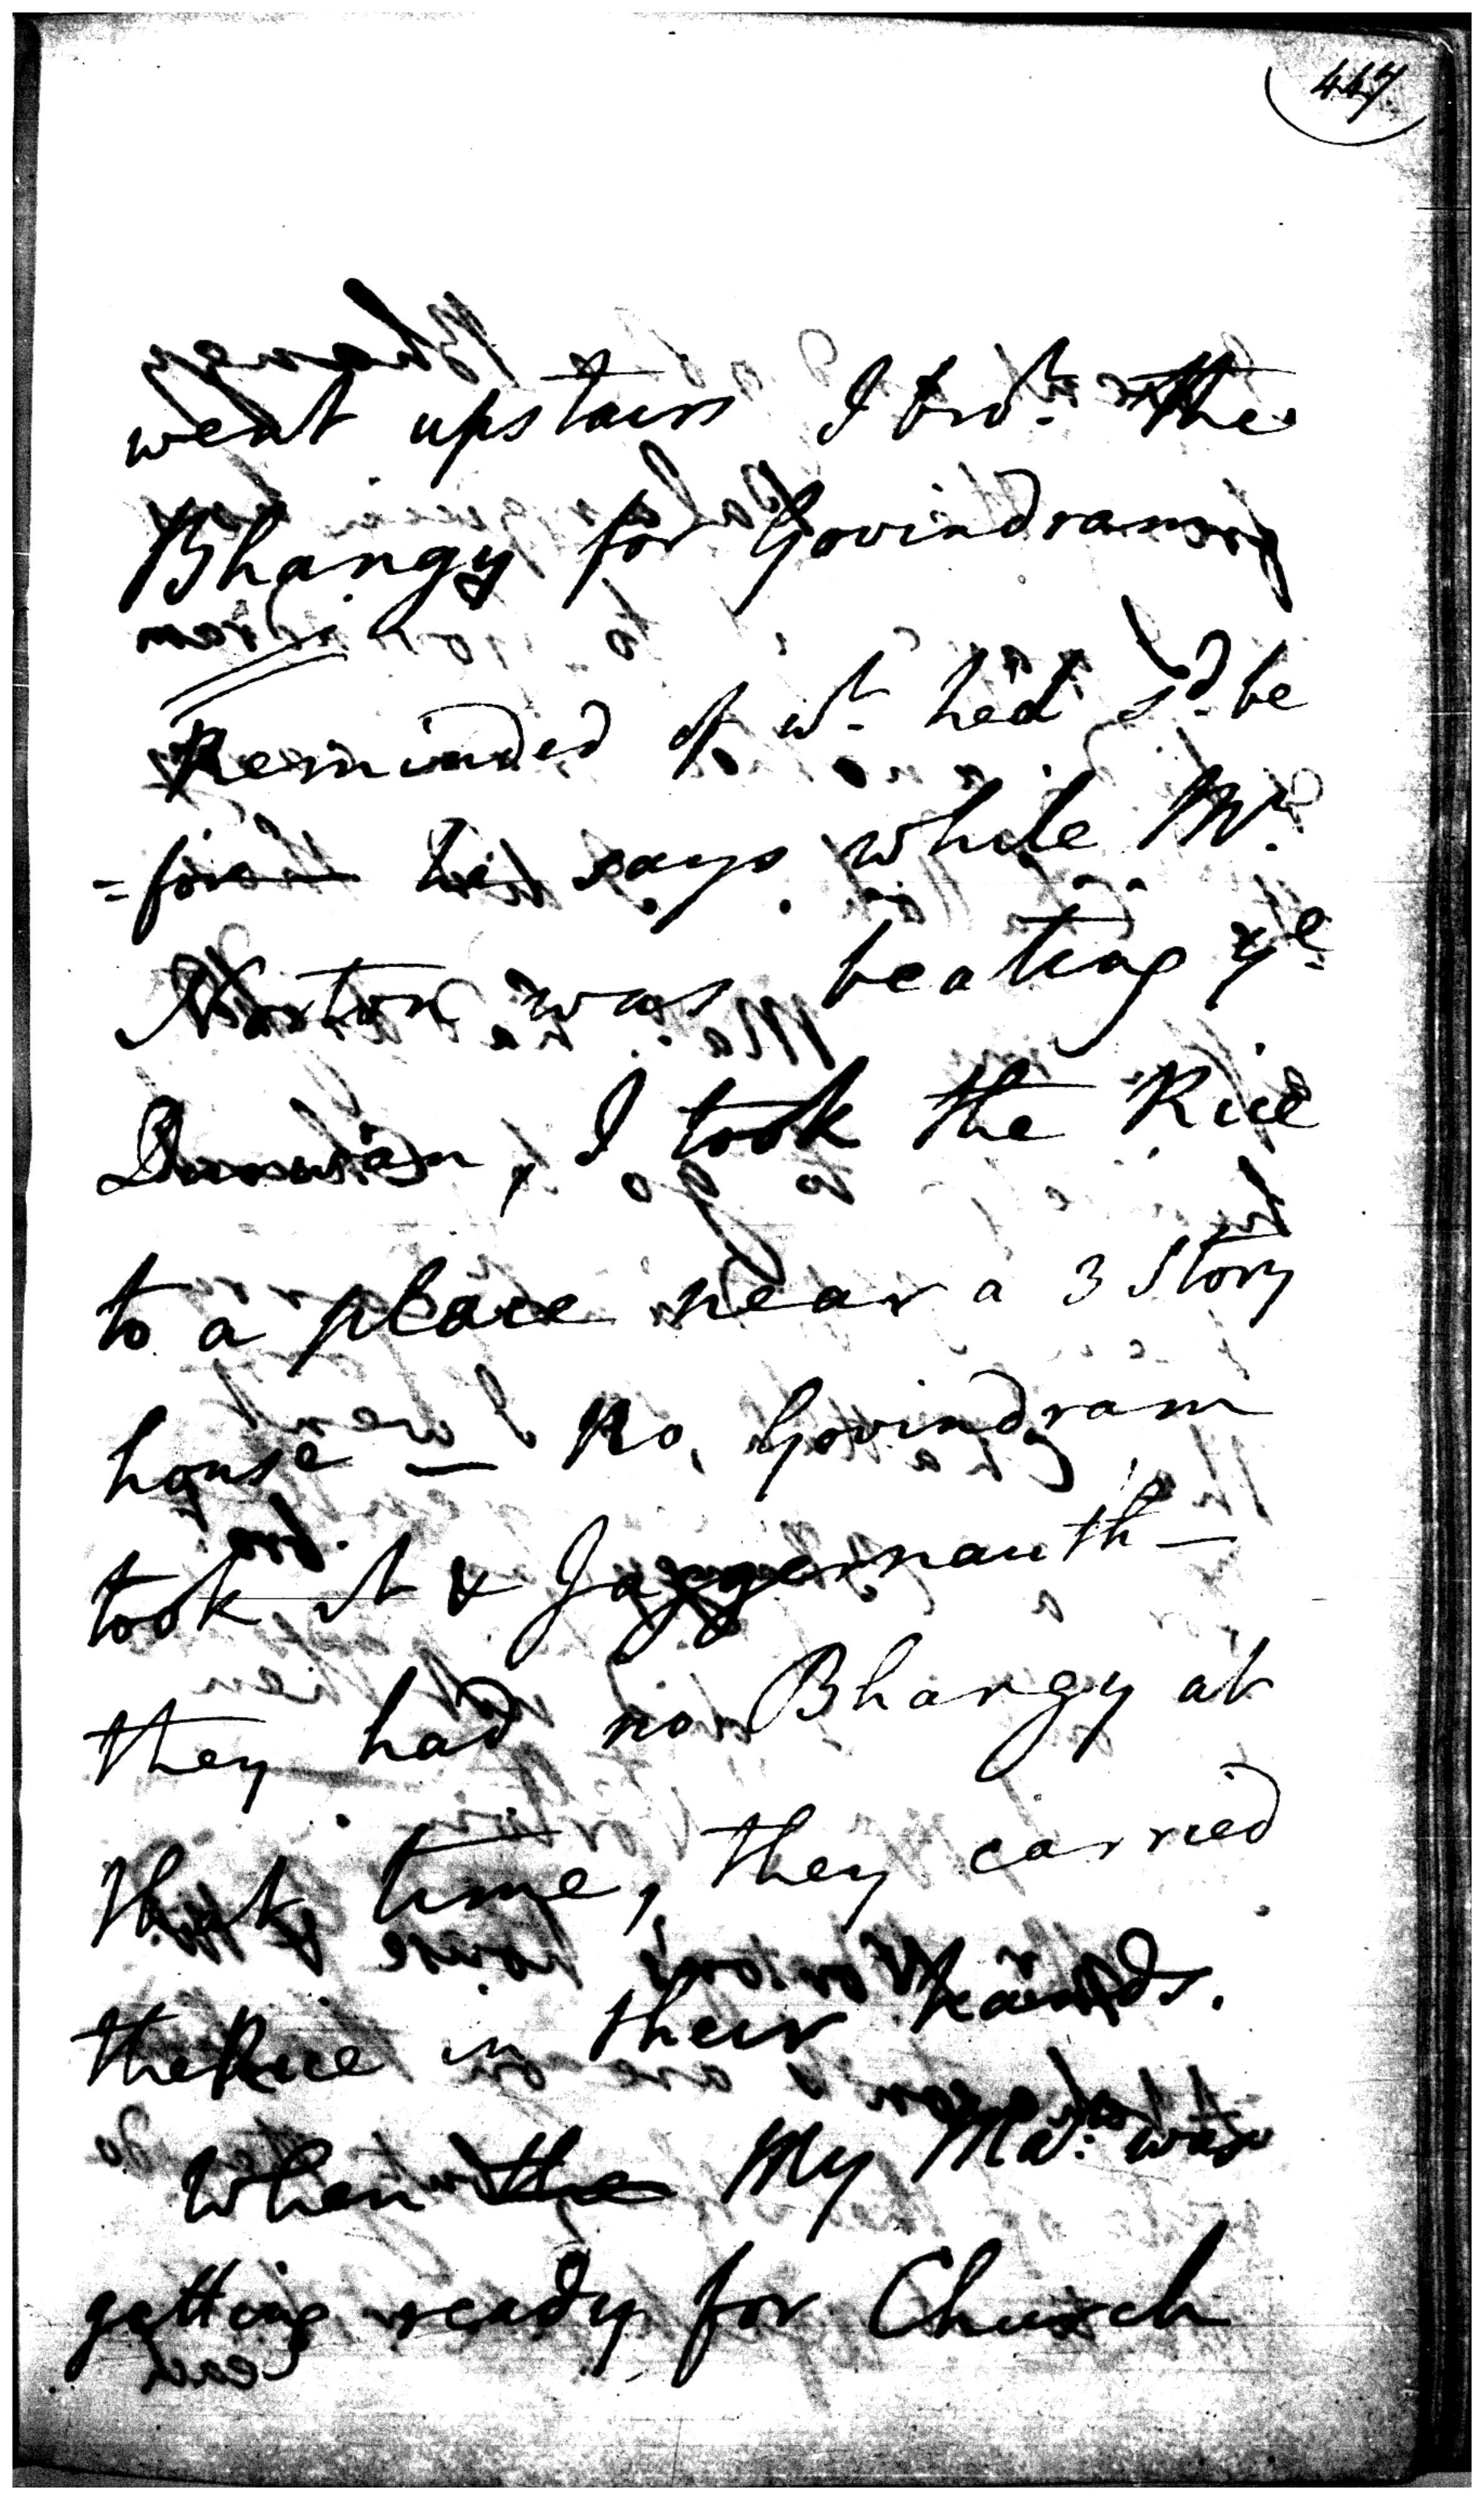 447
went upstairs I bro.t the
Bhangy for Govindram
Reminded of w.t he'd s.d be
=fore he says while Mr.
Norton was beating ye
Durwan, I took the Rice
to a place near a 3 Story
house — No, Govindram
took it & Jaggernauth —
they had no Bhangy at
that time, they carried
the Rice in their hands.
When the My Mar. was
getting ready for Church